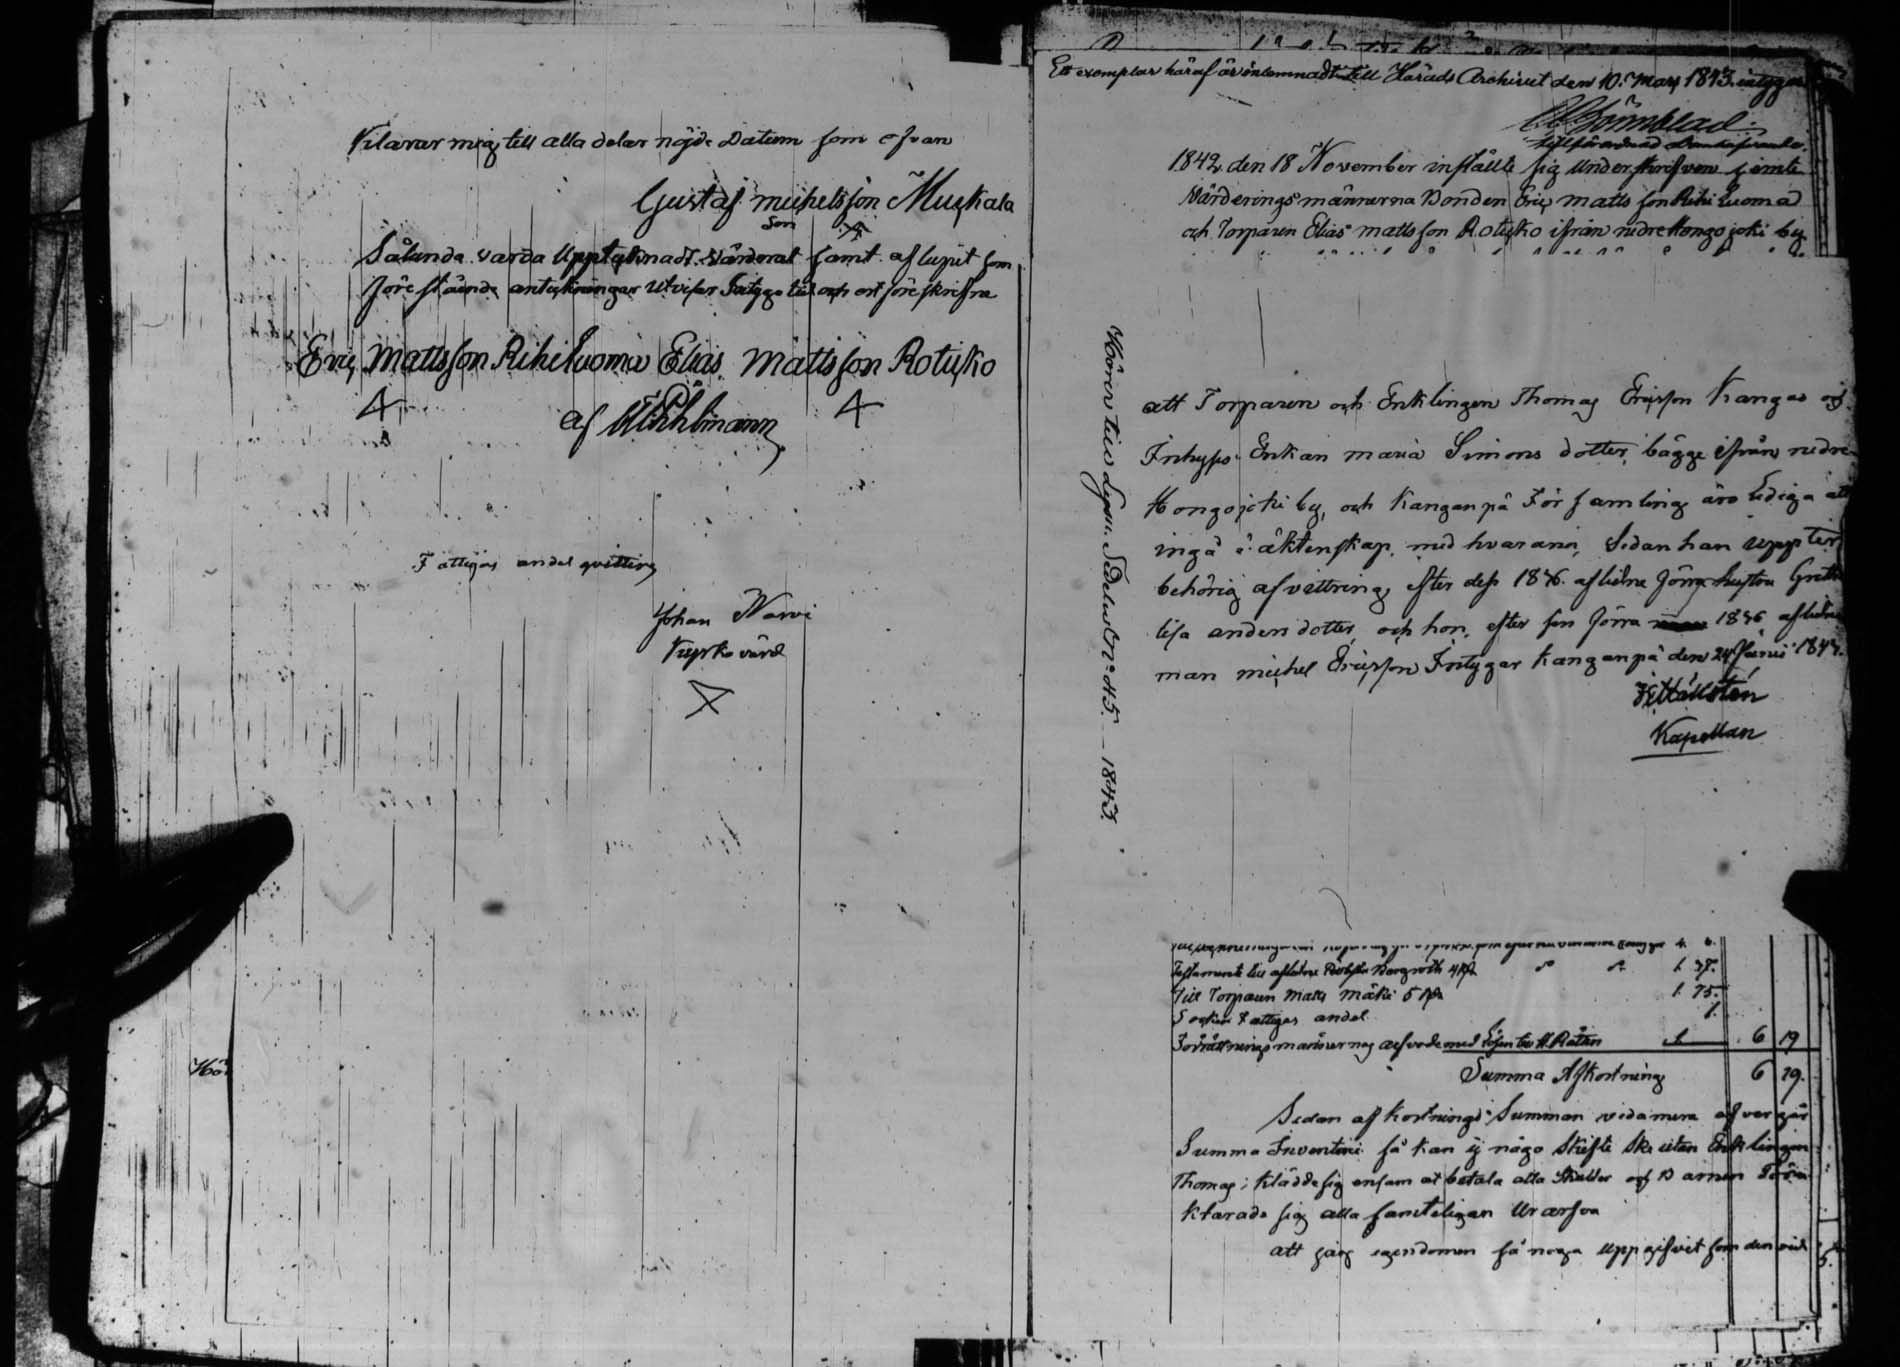 Vilarar mig till alla delar nöjde Datum som ofvan
Gustaf michelsson Muskala
son
Sålunda varda Upptäknadt Värderat samt aflupit som
före stående antekningar Utvisar Intyga tid och ort föreskrifne
Eric Mattsson Rihiluoma Elias Mattsson Rotusko
af
Fattigas andel qvitteras
Johan Narvi
Kyrko värd
Hör
Ett exemplar häraf är inlemnadt till Härads Archivet den 10. Mars 1843. intygar
1842 den 18 November instälte sig Underskrifven jemte
Värderings männerna Bonden Eric mattsson Rihiluoma
och Torparen Elias mattsson Rotusko ifrån nedre Kongojoki by
Hörer till Lysn. Sedeln No 45. — 1843.
att Torparen och Enklingen Thomas Ericsson Kangas och
Inhyses Enkan maria Simons dotter, bägge ifrån nedre
Kongojoki by, och Kanganpä Församling äro lediga att
ingå i äktenskap med hvarana, Sedan han uppter
behörig afvittring efter dess 1836. aflidne förra hustru Greta
lisa anders dotter och hon, efter sin förra 1836 aflidne
man michel Ericsson Intygar Kanganpä den 24 Junii 1842.
Hällsten
Kapellan
Testamente till aflidne Bergroth 4 do do 1. 37.
Till Torparen Matts Mäki 5 1. 75.
Socken Fattigas andel 1.
Förrättningsmännernas arfvode med Lösen 1 6 19
Summa Afkortning 6 19.
Sedan afkortnings Summan vida mera öfvergår
Summa Inventarii så kan ej någo Skifte Ske utan Enklingen
Thomas; Klädde sig ensam at betala alla Skulder och Barnen För
klarade sig alla samteligan Urarfva
att jag egendomen så noga uppgifvit som den vid